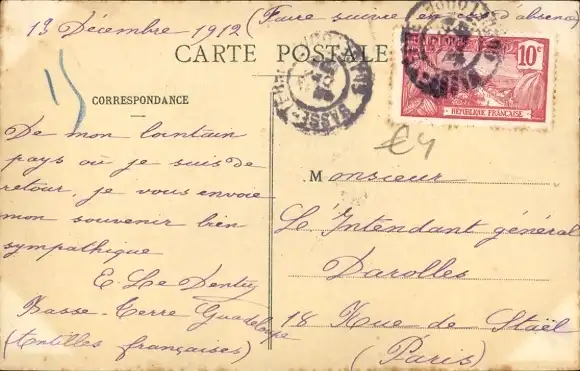 13 Décembre 1912 (Faire suivre en cas d'absence)
CARTE POSTALE
CORRESPONDANCE
De mon lointain
pays où je suis de
retour, je vous envoie
mon souvenir bien
sympathique
E Le Dentu
Basse-Terre Guadeloupe
(Antilles françaises)
BASSE-TERRE
10c
RÉPUBLIQUE FRANÇAISE
€4
Monsieur
Le Intendant général
Darolles
18 Rue de Staël
(Paris)